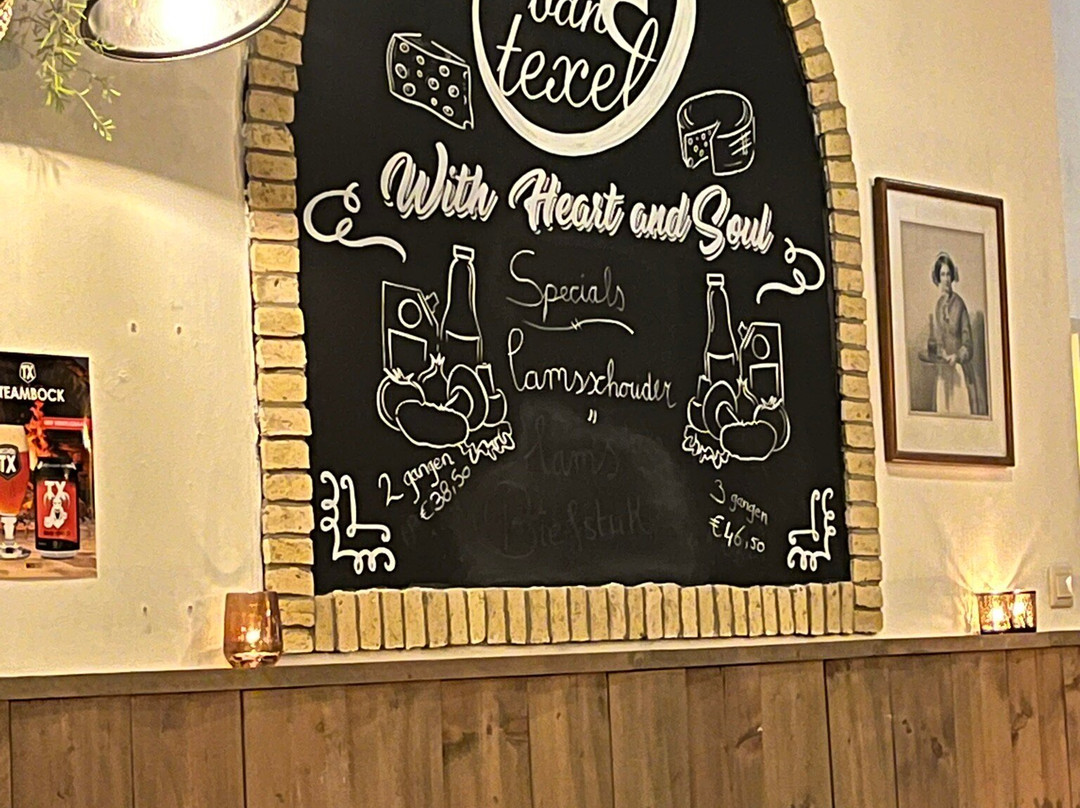 van
texel
With Heart and Soul
Specials
Lamsschouder
"
Lams
Biefstuk
2 gangen
€38,50
3 gangen
€46,50
TX
TEAMBOCK
TX
TX